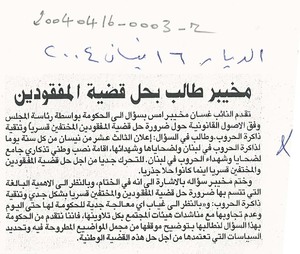 20040416-0003-2
الديار ١٦ نيسان ٢٠٠٤
مخيبر طالب بحل قضية المفقودين
تقدم النائب غسان مخيبر امس بسؤال الى الحكومة بواسطة رئاسة المجلس
وفق الاصول القانونية حول ضرورة حل قضية المفقودين المختفين قسرياً وتنقية
ذاكرة الحروب. وطالب في السؤال: إعلان الثالث عشر من نيسان من كل سنة يوماً
لذاكرة الحروب في لبنان ولضحاياها وشهدائها، اقامة نصب وطني تذكاري جامع
لضحايا وشهداء الحروب في لبنان. للتحرك جدياً من اجل حل قضية المفقودين
والمختفين قسريا اينما كانوا حلا جذرياً.
وختم مخيبر سؤاله بالاشارة الى انه في الختام، وبالنظر الى الاهمية البالغة
التي تتسم بها ضرورة حل قضية المفقودين والمختفين قسريا بشكل جدي وتنقية
ذاكرة الحروب: «وبالنظر الى غياب اي معالجة جدية للحكومة لها حتى اليوم
وعدم تجاوبها مع مناشدات هيئات المجتمع بكل تلاوينها، فاننا نتقدم من الحكومة
بهذا السؤال لنطالبها بتوضيح موقفها من مجمل المواضيع المطروحة فيه وتحديد
السياسات التي تعتمدها من اجل حل هذه القضية الوطنية.